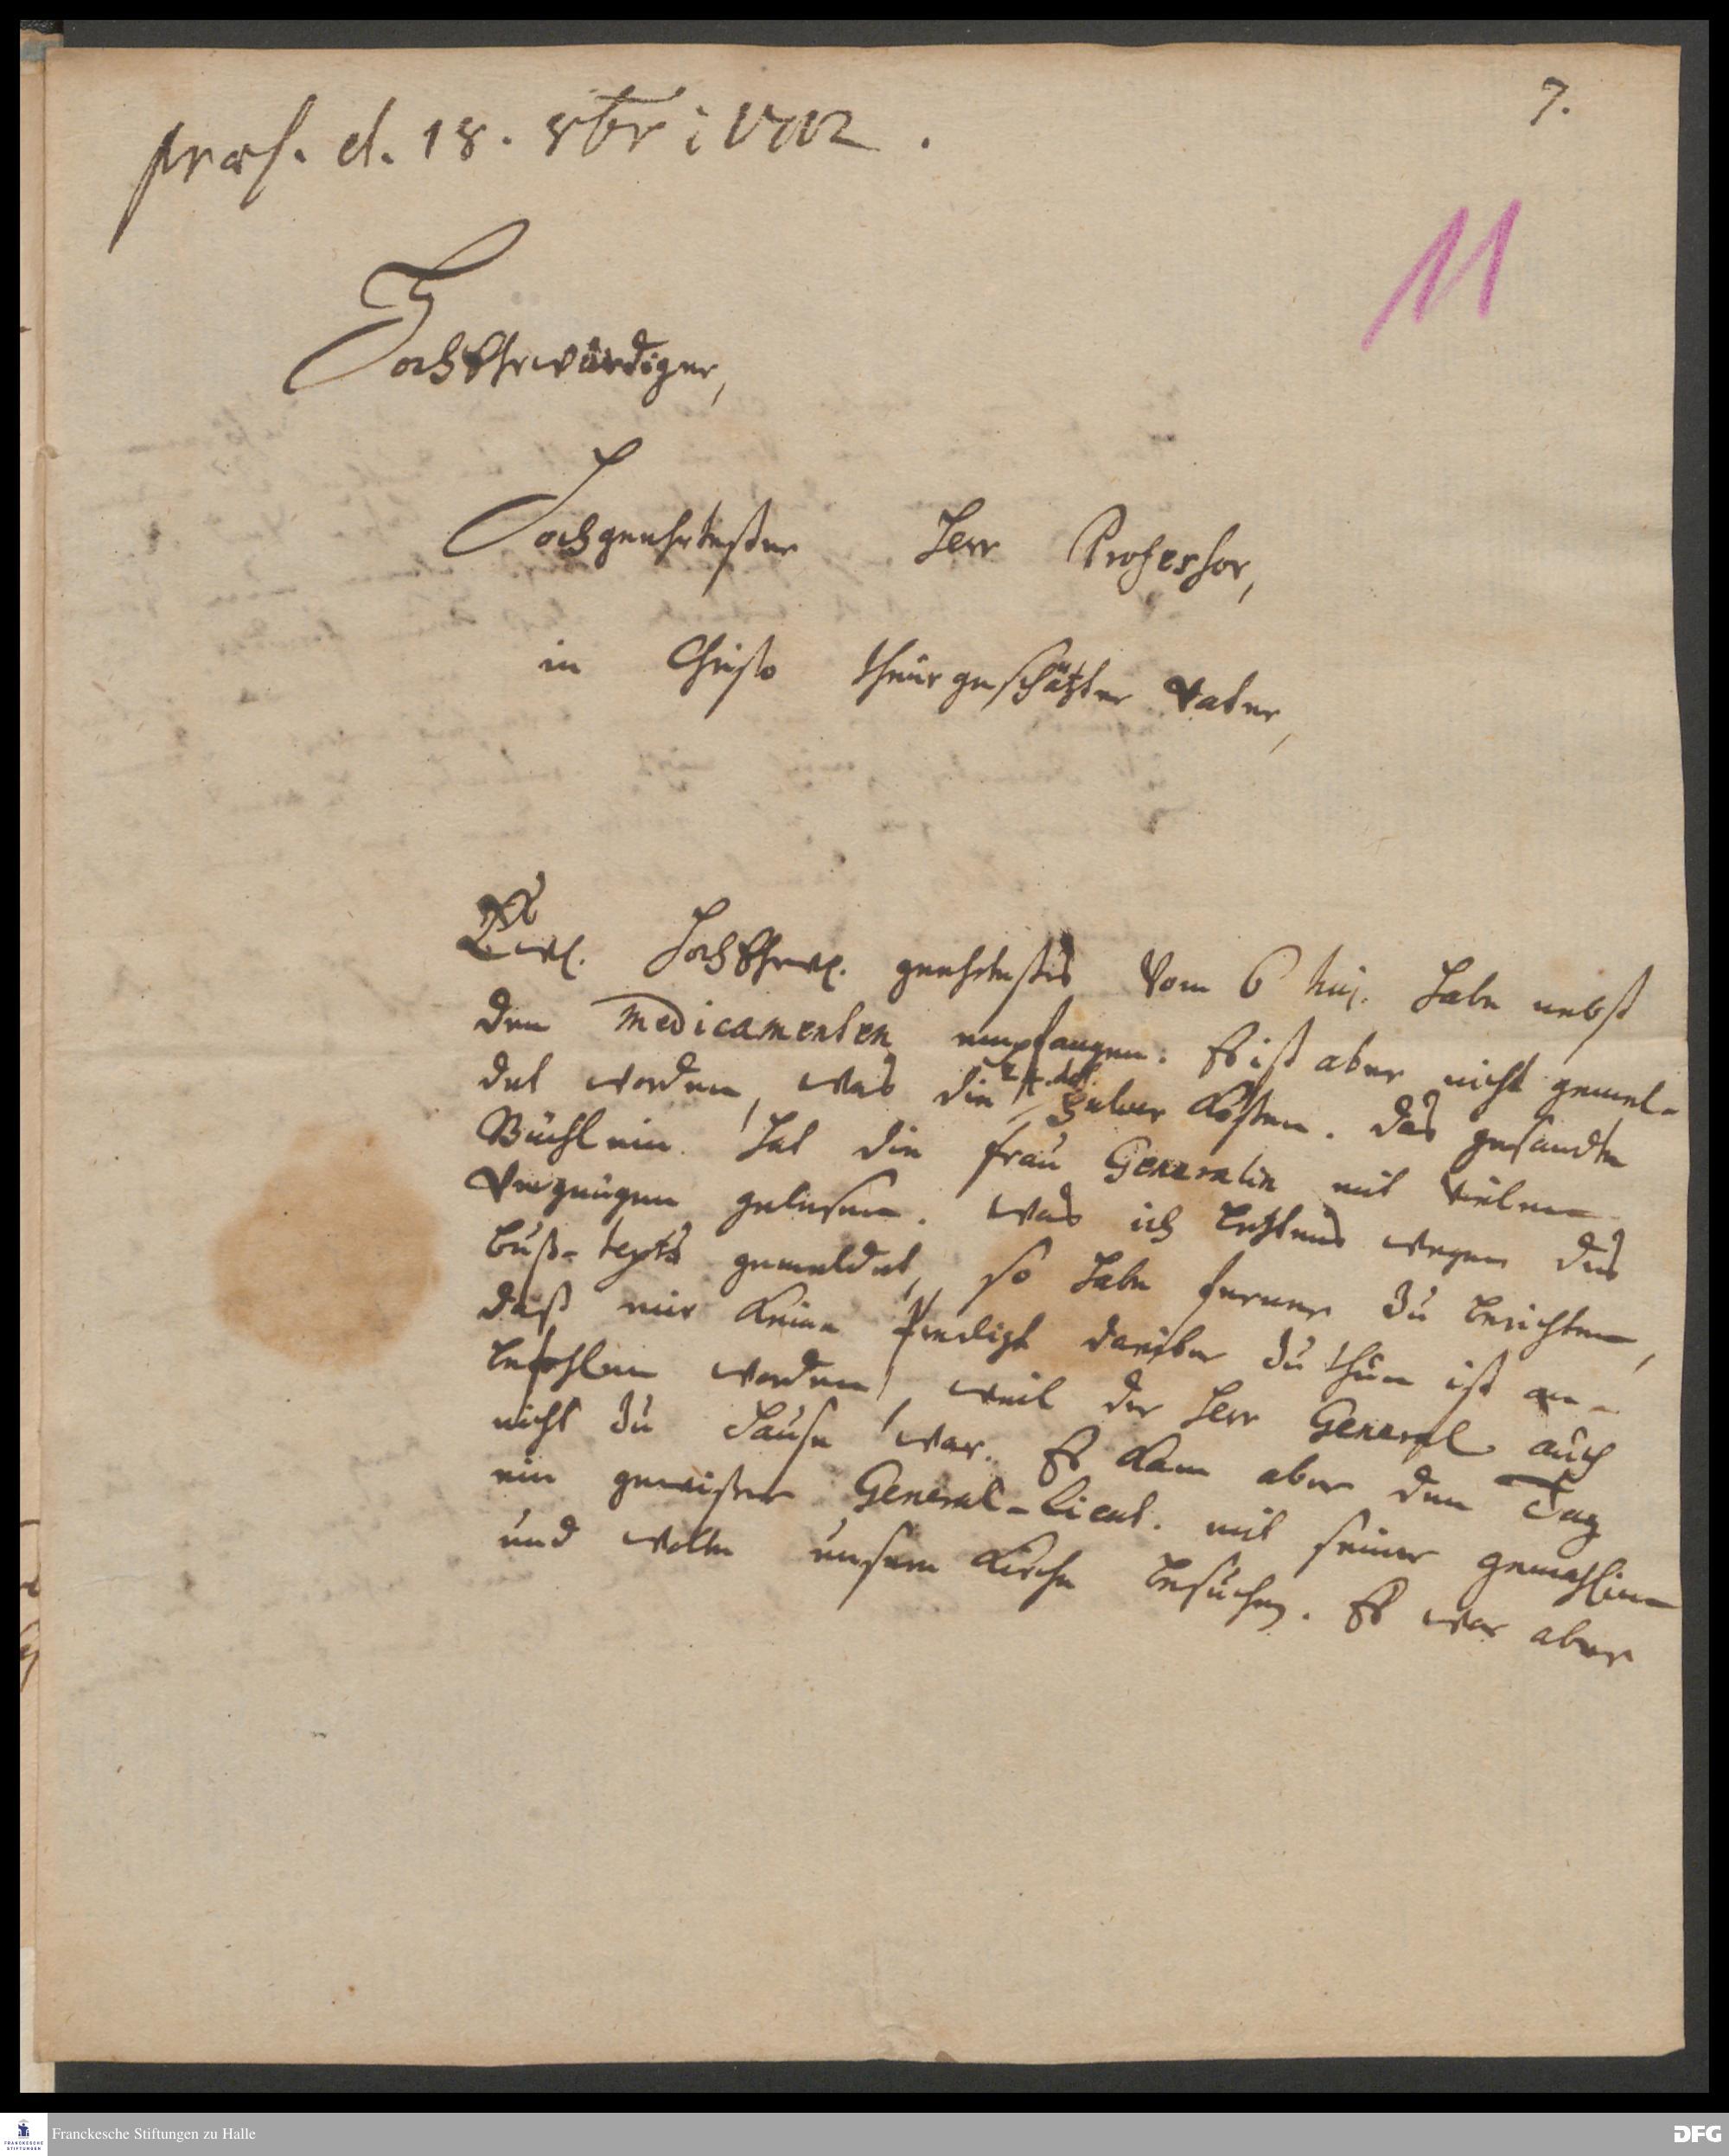 7.
præs. d. 18. 8br: 1712.
11
HochEhrwürdiger,
Hochgeehrtester Herr Professor,
in Christo theür geschätzter Vater,
Ewl. HochEhrw. geehrtestes vom 6 huj. habe nebst
den Medicamenten empfangen. Es ist aber nicht gemel-
det worden, was die 24 dos. pulver kosten. Das gesandte
Büchlein hat die Frau Generalin mit vielem
Vergnügen gelesen. Was ich letztens wegen des
buß-texts gemeldet, so habe ferner zu berichten,
daß mir keine Predigt darüber zu thun ist an-
befohlen worden, weil der Herr General auch
nicht zu Hause war. Es kam aber den Tag
ein gewißer General-Lieut. mit seiner gemahlin
und wolte unsere Kirche besuchen. Es war aber
Franckesche Stiftungen zu Halle
FRANCKESCHE
STIFTUNGEN
DFG